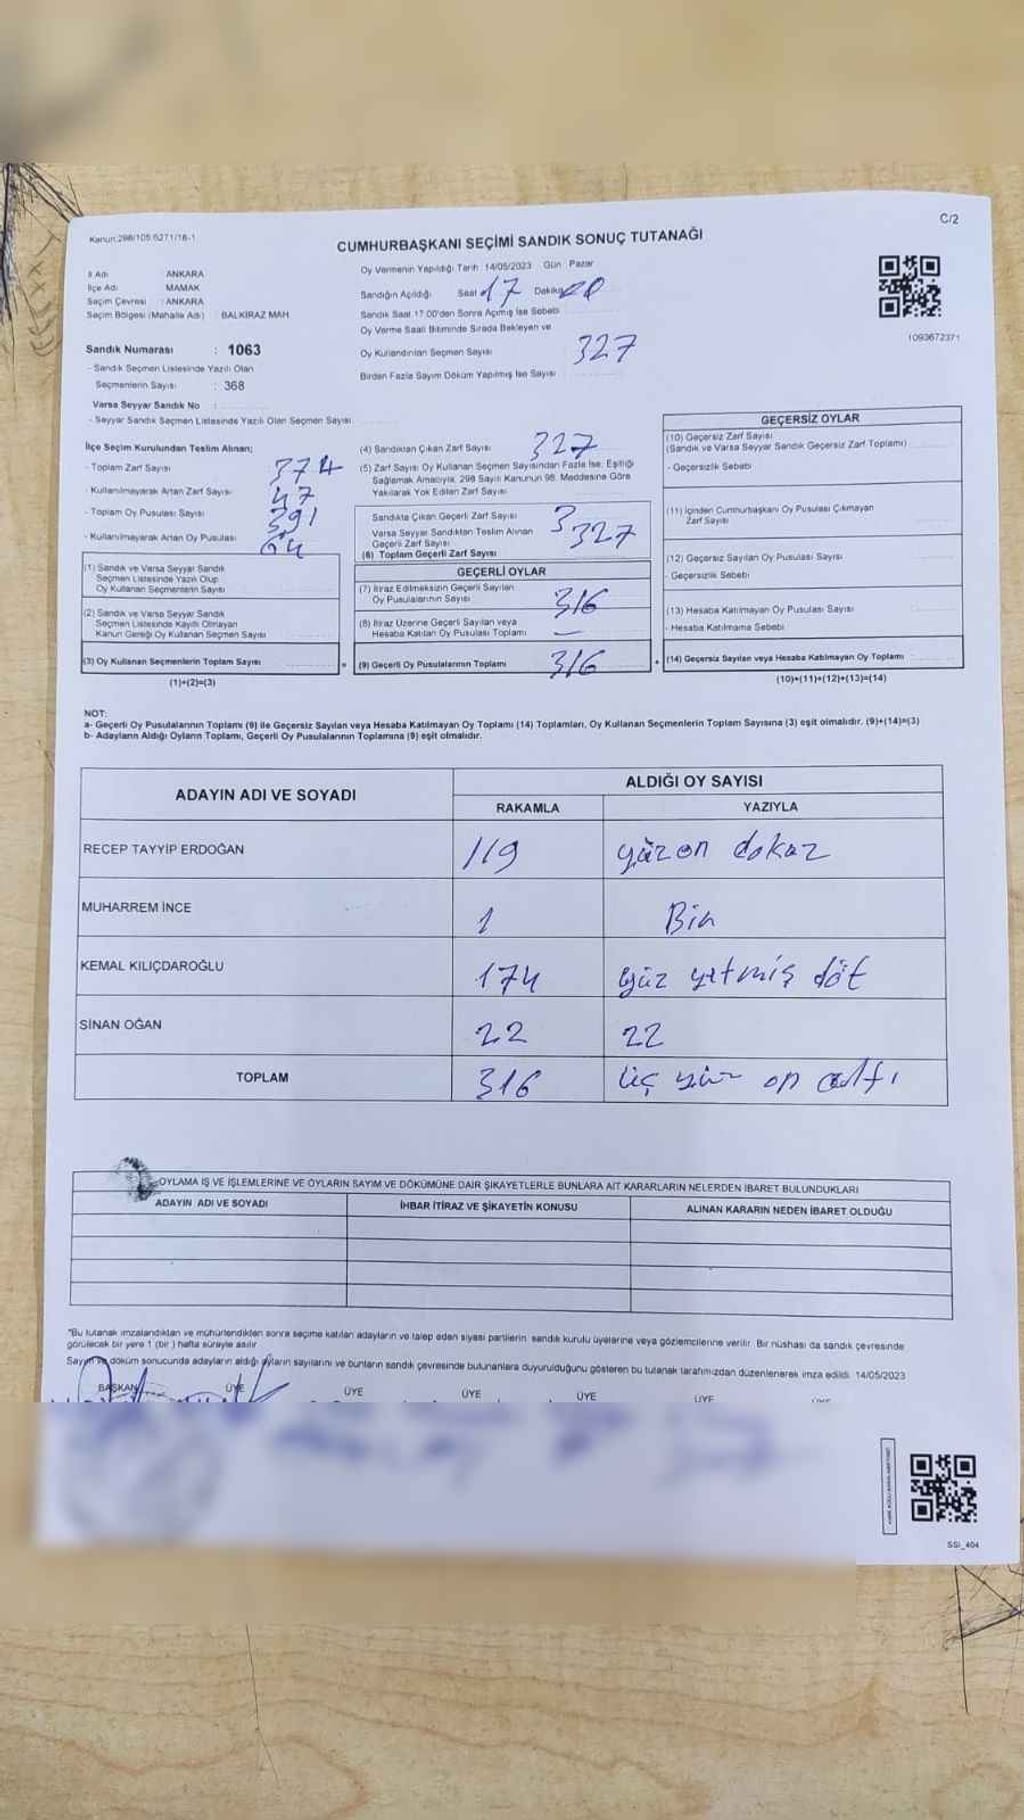 Kanun:298/105;6271/18-1
C/2
CUMHURBAŞKANI SEÇİMİ SANDIK SONUÇ TUTANAĞI
İl Adı ANKARA
İlçe Adı MAMAK
Seçim Çevresi : ANKARA
Seçim Bölgesi (Mahalle Adı) BALKİRAZ MAH
Sandık Numarası : 1063
- Sandık Seçmen Listesinde Yazılı Olan
Seçmenlerin Sayısı : 368
Varsa Seyyar Sandık No :
- Seyyar Sandık Seçmen Listesinde Yazılı Olan Seçmen Sayısı
Oy Vermenin Yapıldığı Tarih 14/05/2023 Gün Pazar
Sandığın Açıldığı Saat 17 Dakika 00
Sandık Saat 17.00'den Sonra Açılmış İse Sebebi
Oy Verme Saati Bitiminde Sırada Bekleyen ve
Oy Kullandırılan Seçmen Sayısı 327
Birden Fazla Sayım Döküm Yapılmış İse Sayısı
1093672371
İlçe Seçim Kurulundan Teslim Alınan;
- Toplam Zarf Sayısı 374
- Kullanılmayarak Artan Zarf Sayısı 47
- Toplam Oy Pusulası Sayısı 391
- Kullanılmayarak Artan Oy Pusulası 64
(1) Sandık ve Varsa Seyyar Sandık
Seçmen Listesinde Yazılı Olup
Oy Kullanan Seçmenlerin Sayısı
(2) Sandık ve Varsa Seyyar Sandık
Seçmen Listesinde Kayıtlı Olmayan
Kanun Gereği Oy Kullanan Seçmen Sayısı
(3) Oy Kullanan Seçmenlerin Toplam Sayısı
(1)+(2)=(3)
(4) Sandıktan Çıkan Zarf Sayısı 327
(5) Zarf Sayısı Oy Kullanan Seçmen Sayısından Fazla İse, Eşitliği
Sağlamak Amacıyla, 298 Sayılı Kanunun 98. Maddesine Göre
Yakılarak Yok Edilen Zarf Sayısı
Sandıkta Çıkan Geçerli Zarf Sayısı 3
Varsa Seyyar Sandıktan Teslim Alınan
Geçerli Zarf Sayısı 327
(6) Toplam Geçerli Zarf Sayısı
GEÇERLİ OYLAR
(7) İtiraz Edilmeksizin Geçerli Sayılan
Oy Pusulalarının Sayısı 316
(8) İtiraz Üzerine Geçerli Sayılan veya
Hesaba Katılan Oy Pusulası Toplamı —
= (9) Geçerli Oy Pusulalarının Toplamı 316
GEÇERSİZ OYLAR
(10) Geçersiz Zarf Sayısı
(Sandık ve Varsa Seyyar Sandık Geçersiz Zarf Toplamı)
- Geçersizlik Sebebi
(11) İçinden Cumhurbaşkanı Oy Pusulası Çıkmayan
Zarf Sayısı
(12) Geçersiz Sayılan Oy Pusulası Sayısı
- Geçersizlik Sebebi
(13) Hesaba Katılmayan Oy Pusulası Sayısı
- Hesaba Katılmama Sebebi
+ (14) Geçersiz Sayılan veya Hesaba Katılmayan Oy Toplamı
(10)+(11)+(12)+(13)=(14)
NOT:
a- Geçerli Oy Pusulalarının Toplamı (9) ile Geçersiz Sayılan veya Hesaba Katılmayan Oy Toplamı (14) Toplamları, Oy Kullanan Seçmenlerin Toplam Sayısına (3) eşit olmalıdır. (9)+(14)=(3)
b- Adayların Aldığı Oyların Toplamı, Geçerli Oy Pusulalarının Toplamına (9) eşit olmalıdır.
ADAYIN ADI VE SOYADI
ALDIĞI OY SAYISI
RAKAMLA YAZIYLA
RECEP TAYYİP ERDOĞAN 119 yüzon dokuz
MUHARREM İNCE 1 Bir
KEMAL KILIÇDAROĞLU 174 yüz yetmiş döt
SİNAN OĞAN 22 22
TOPLAM 316 üç yüz on altı
OYLAMA İŞ VE İŞLEMLERİNE VE OYLARIN SAYIM VE DÖKÜMÜNE DAİR ŞİKAYETLERLE BUNLARA AİT KARARLARIN NELERDEN İBARET BULUNDUKLARI
ADAYIN ADI VE SOYADI İHBAR İTİRAZ VE ŞİKAYETİN KONUSU ALINAN KARARIN NEDEN İBARET OLDUĞU
"Bu tutanak imzalandıktan ve mühürlendikten sonra seçime katılan adayların ve talep eden siyasi partilerin sandık kurulu üyelerine veya gözlemcilerine verilir. Bir nüshası da sandık çevresinde
görülecek bir yere 1 (bir) hafta süreyle asılır
Sayım ve döküm sonucunda adayların aldığı oyların sayılarını ve bunların sandık çevresinde bulunanlara duyurulduğunu gösteren bu tutanak tarafımızdan düzenlenerek imza edildi. 14/05/2023
BAŞKAN ÜYE ÜYE ÜYE ÜYE ÜYE
SSİ_404